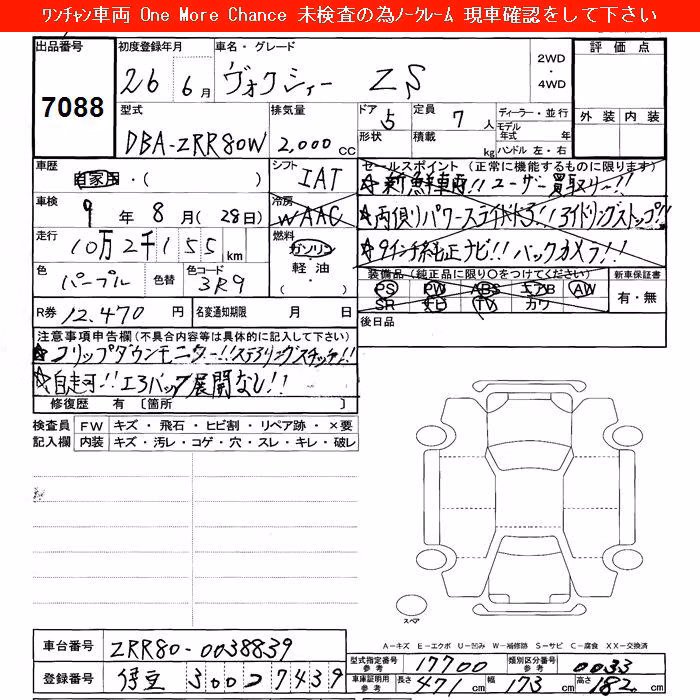 ワンチャン車両 One More Chance 未検査の為ノークレーム 現車確認をして下さい
出品番号 初度登録年月 車名・グレード 評価点
7088 26 6月 ヴォクシィー ZS 2WD・4WD
型式 排気量 ドア 5 定員 7人 ディーラー・並行 外装 内装
DBA-ZRR80W 2,000cc 形状 積載 kg モデル年式 年 ハンドル 左・右
車歴 自家用・( ) シフト IAT セールスポイント (正常に機能するものに限ります)
☆新鮮車両!! ユーザー買取リー!!
車検 9年 8月 (28日) 冷房 WAAC
☆両側リパワースライドドア!! アイドリングストップ!!
走行 10万2千155km 燃料 ガソリン・軽油・( )
☆9インチ純正ナビ!! バックカメラ!!
色 パープル 色替 色コード 3R9
装備品 (純正品に限り○をつけてください) 新車保証書
PS PW ABS エアB AW 有・無
SR ナビ TV カワ
R券 12,470円 名変通知期限 月 日 後日品
注意事項申告欄 (不具合内容等は具体的に記入して下さい)
☆フリップダウンモニター!! ステアリングスイッチ!!
☆自走可!! エアバッグ展開なし!!
修復歴 有 〔箇所 〕
検査員 FW キズ・飛石・ヒビ割・リペア跡・×要
記入欄 内装 キズ・汚レ・コゲ・穴・スレ・キレ・破レ
スペア
A-キズ E-エクボ U-凹み W-補修跡 S-サビ C-腐食 XX-交換済
車台番号 ZRR80-0038839
型式指定番号 参考 17700 類別区分番号 参考 0033
登録番号 伊豆 300 ね 7439
車庫証明用 参考 長さ 471cm 幅 173cm 高さ 182cm